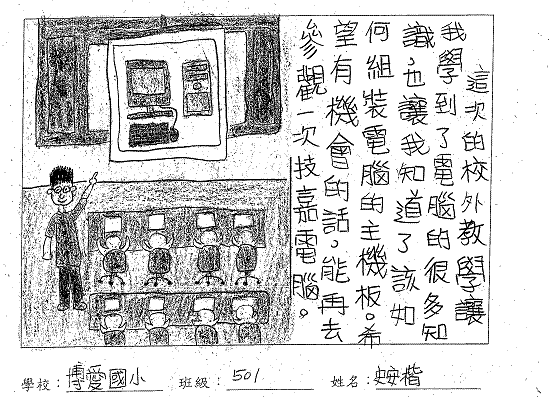 這次的校外教學讓
我學到了電腦的很多知
識,也讓我知道了該如
何組裝電腦的主機板。希
望有機會的話,能再去
參觀一次技嘉電腦。
學校：博愛國小 班級：501 姓名：史安楷